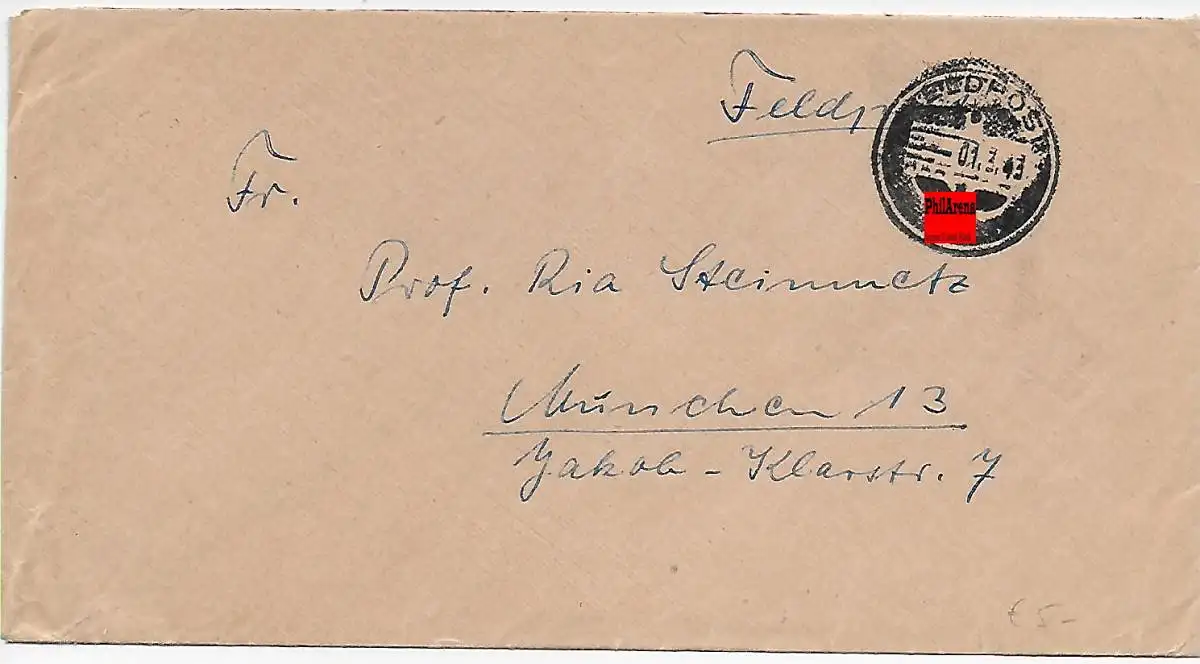 Feldp
FELDPOST
01.3.43
PhilArena
Fr.
Prof. Ria Steinmetz
München 13
Jakob-Klarstr. 7
€ 5-